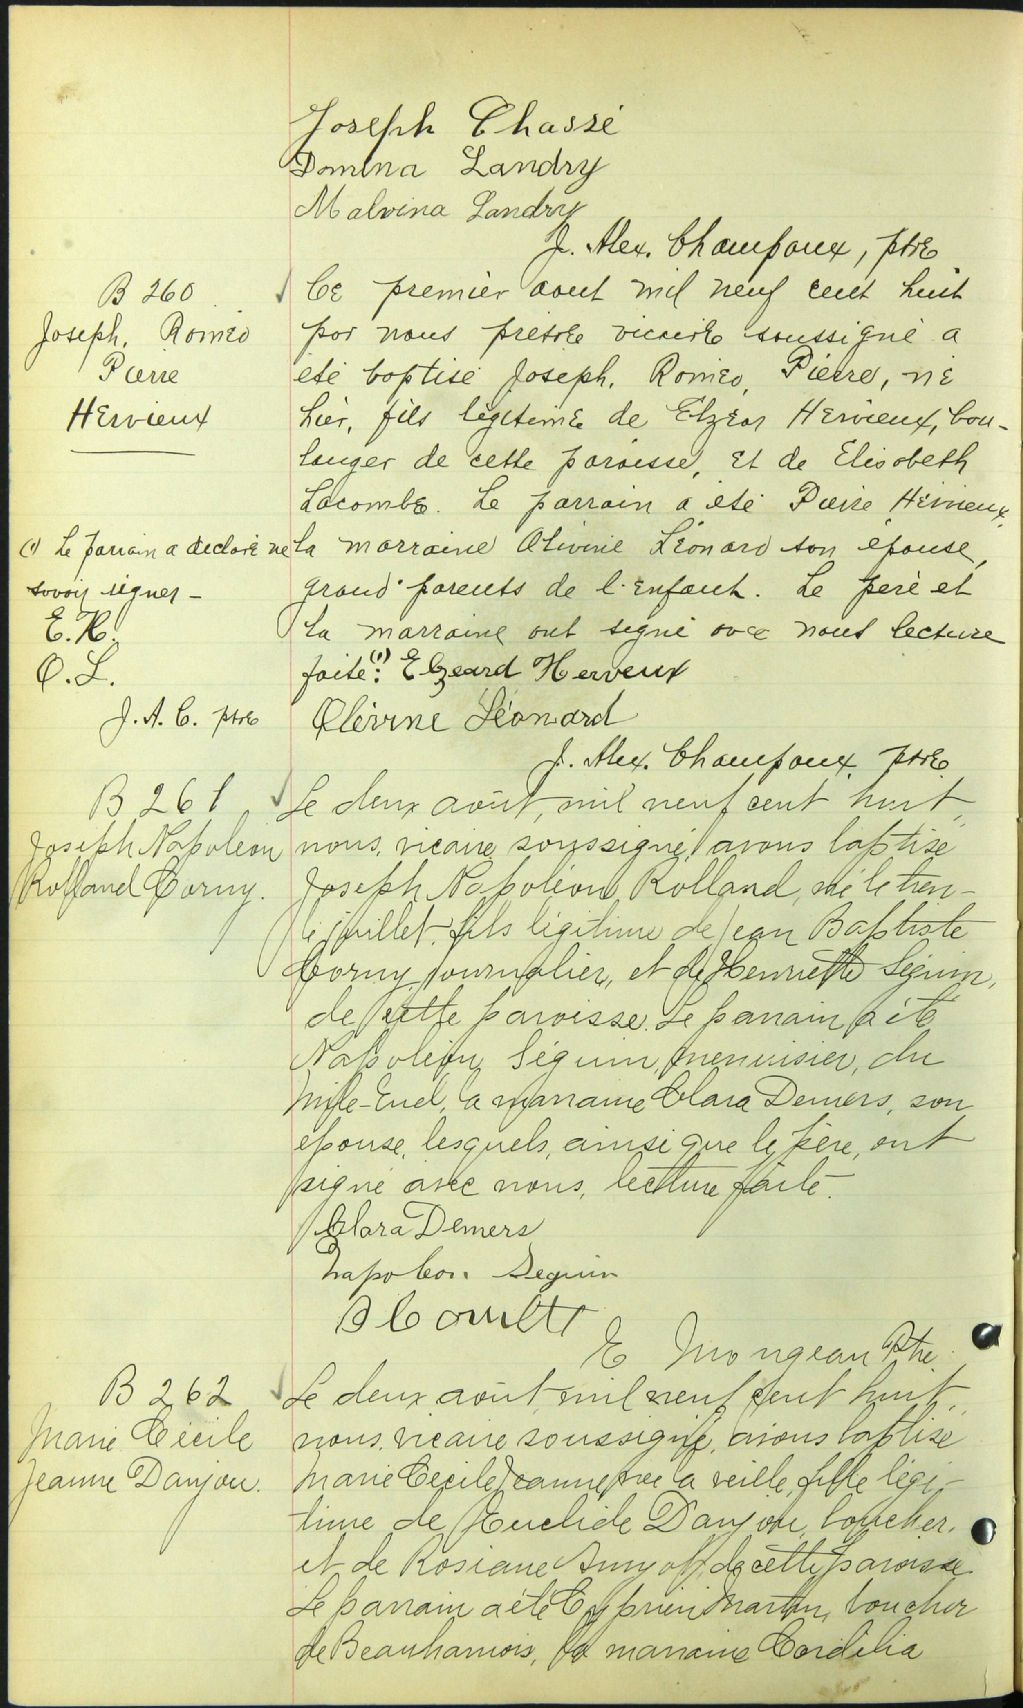 Joseph Chassé
Domina Landry
Malvina Landry
J. Alex. Champoux, ptre
B 260
Joseph, Roméo
Pierre
Hervieux
Ce premier aout mil neuf cent huit
par nous prêtre vicaire soussigné a
été baptisé Joseph, Roméo, Pierre, né
hier, fils légitime de Elzéar Hervieux, bou-
langer de cette paroisse, et de Elisabeth
Lacombe. Le parrain a été Pierre Hervieux,
la marraine Olivine Léonard son épouse,
grand-parents de l'enfant. Le père et
la marraine ont signé avec nous lecture
faite. (1) Elzeard Herveux
(1) Le parrain a déclaré ne
savoir signer -
E. H.
O. L.
J. A. C. ptre
Olévine Léonard
J. Alex. Champoux, ptre
B 261
Joseph Napoléon
Rolland Corny.
Le deux août, mil neuf cent huit,
nous, vicaire soussigné, avons baptisé
Joseph Napoléon Rolland, né le tren-
te juillet, fils légitime de Jean Baptiste
Corny, journalier, et de Henriette Séguin,
de cette paroisse. Le parrain a été
Napoléon Séguin, menuisier, du
Mile-End, la marraine Clara Demers, son
épouse, lesquels, ainsi que le père, ont
signé avec nous, lecture faite.
Clara Demers
Napoleon Seguin
E Mongeau Ptre.
B 262
Marie Cécile
Jeanne Danjou.
Le deux août, mil neuf cent huit,
nous, vicaire soussigné, avons baptisé
Marie Cécile Jeanne, née la veille, fille légi-
time de Euclide Danjou, boucher,
et de Rosiane de cette paroisse
Le parrain a été Cyprien Martin, boucher
de Beauharnois, la marraine Cordélia